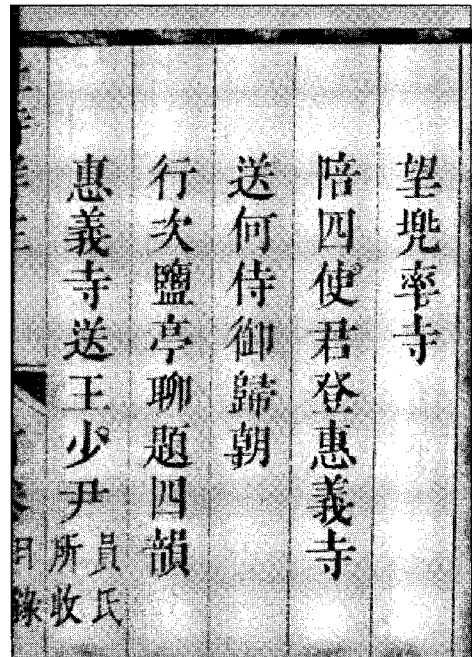 望兠率寺
陪四使君登惠義寺
送何侍御歸朝
行次鹽亭聊題四韻
惠義寺送王少尹員氏所收